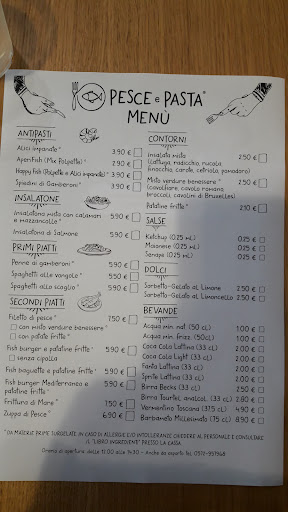 PESCE e PASTA*
MENÙ
ANTIPASTI
Alici impanate* 3.90 €
AperiFish (Mix Polpette)* 2.90 €
Happy Fish (Polpette e Alici impanate)* 3.90 €
Spiedini di Gamberoni* 5.90 €
INSALATONE
Insalatona mista con calamari
e mazzancolle* 5.90 €
Insalatona di Salmone 5.90 €
PRIMI PIATTI
Penne ai gamberoni* 5.90 €
Spaghetti alle vongole* 5.90 €
Spaghetti allo scoglio* 5.90 €
SECONDI PIATTI
Filetto di pesce* 7.50 €
con misto verdure benessere*
con patate fritte*
Fish burger e patatine fritte* 5.90 €
senza cipolla
Fish baguette e patatine fritte* 5.90 €
Fish burger Mediterraneo e
patatine fritte* 5.90 €
Frittura di Mare* 7.50 €
Zuppa di Pesce* 6.90 €
CONTORNI
Insalata mista 2.50 €
(lattuga, radicchio, rucola,
finocchio, carote, cetriolo, pomodoro)
Misto verdure benessere* 2.50 €
(cavolfiore, cavolo romano,
broccoli, cavolini di Bruxelles)
Patatine fritte* 2.10 €
SALSE
Ketchup (0.25 mL) 0.25 €
Maionese (0.25 mL) 0.25 €
Senape (0.25 mL) 0.25 €
DOLCI
Sorbetto-Gelato al Limone 2.50 €
Sorbetto-Gelato al Limoncello 2.50 €
BEVANDE
Acqua min. nat. (50 cl) 1.00 €
Acqua min. frizz. (50 cl) 1.00 €
Coca Cola Lattina (33 cl) 2.00 €
Coca Cola Light (33 cl) 2.00 €
Fanta Lattina (33 cl) 2.00 €
Sprite Lattina (33 cl) 2.00 €
Birra Becks (33 cl) 2.50 €
Birra Tourtel, analcol. (33 cl) 2.50 €
Vermentino Toscana (37.5 cl) 4.90 €
Barbarosa Millesimato (75 cl) 8.90 €
*DA MATERIE PRIME SURGELATE. IN CASO DI ALLERGIE E/O INTOLLERANZE CHIEDERE AL PERSONALE E CONSULTARE
IL "LIBRO INGREDIENTI" PRESSO LA CASSA.
Orario di apertura dalle 11.00 alle 14.30 - Anche da asporto Tel.